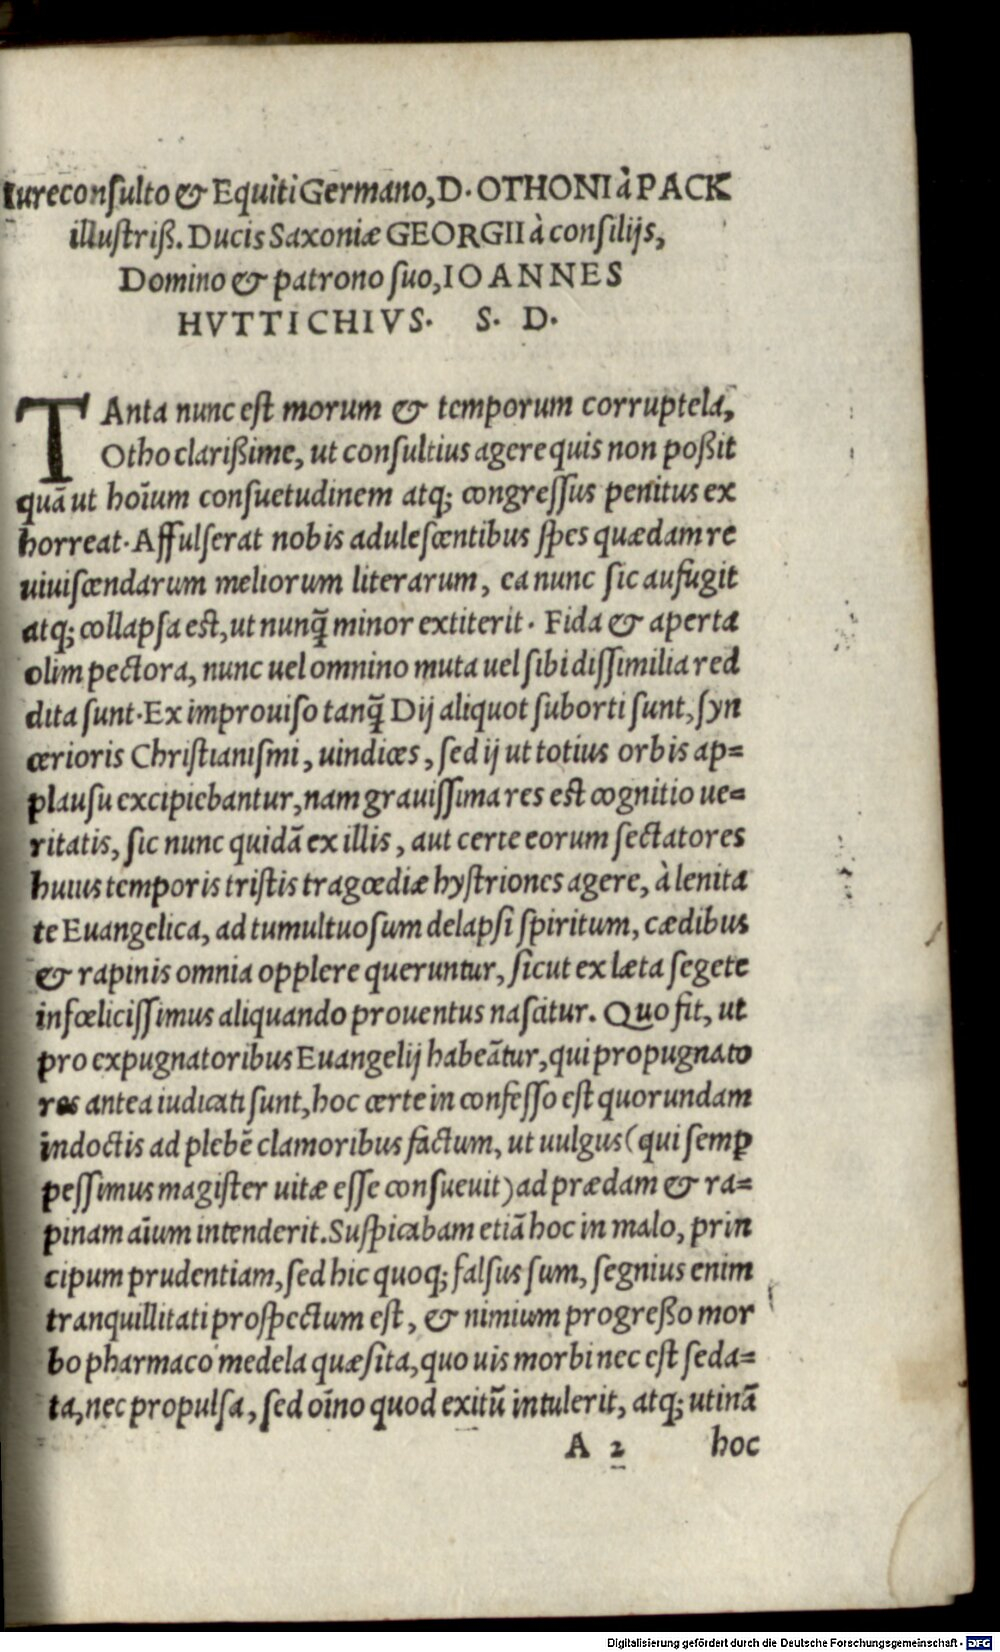 Iureconsulto & Equiti Germano, D. OTHONI à PACK
illustriß. Ducis Saxoniæ GEORGII à consilijs,
Domino & patrono suo, IOANNES
HVTTICHIVS. S. D.
TAnta nunc est morum & temporum corruptela,
Otho clarißime, ut consultius agere quis non poßit
quã ut hoīum consuetudinem atq; congressus penitus ex
horreat. Affulserat nobis adulescentibus spes quædam re
uiuiscendarum meliorum literarum, ea nunc sic aufugit
atq; collapsa est, ut nunq̃ minor extiterit. Fida & aperta
olim pectora, nunc uel omnino muta uel sibi dissimilia red
dita sunt. Ex improuiso tanq̃ Dij aliquot suborti sunt, syn
cerioris Christianismi, uindices, sed ij ut totius orbis ap=
plausu excipiebantur, nam grauissima res est cognitio ue=
ritatis, sic nunc quidã ex illis, aut certe eorum sectatores
huius temporis tristis tragœdiæ hystriones agere, à lenita
te Euangelica, ad tumultuosum delapsi spiritum, cædibus
& rapinis omnia opplere queruntur, sicut ex læta segete
infœlicissimus aliquando prouentus nascitur. Quo fit, ut
pro expugnatoribus Euangelij habeãtur, qui propugnato
res antea iudicati sunt, hoc certe in confesso est quorundam
indoctis ad plebẽ clamoribus factum, ut uulgus (qui semꝑ
pessimus magister uitæ esse consueuit) ad prædam & ra=
pinam aīum intenderit. Suspicabam etiã hoc in malo, prin
cipum prudentiam, sed hic quoq; falsus sum, segnius enim
tranquillitati prospectum est, & nimium progreßo mor
bo pharmaco medela quæsita, quo uis morbi nec est seda=
ta, nec propulsa, sed oīno quod exitũ intulerit, atq; utinã
A 2 hoc
Digitalisierung gefördert durch die Deutsche Forschungsgemeinschaft - DFG